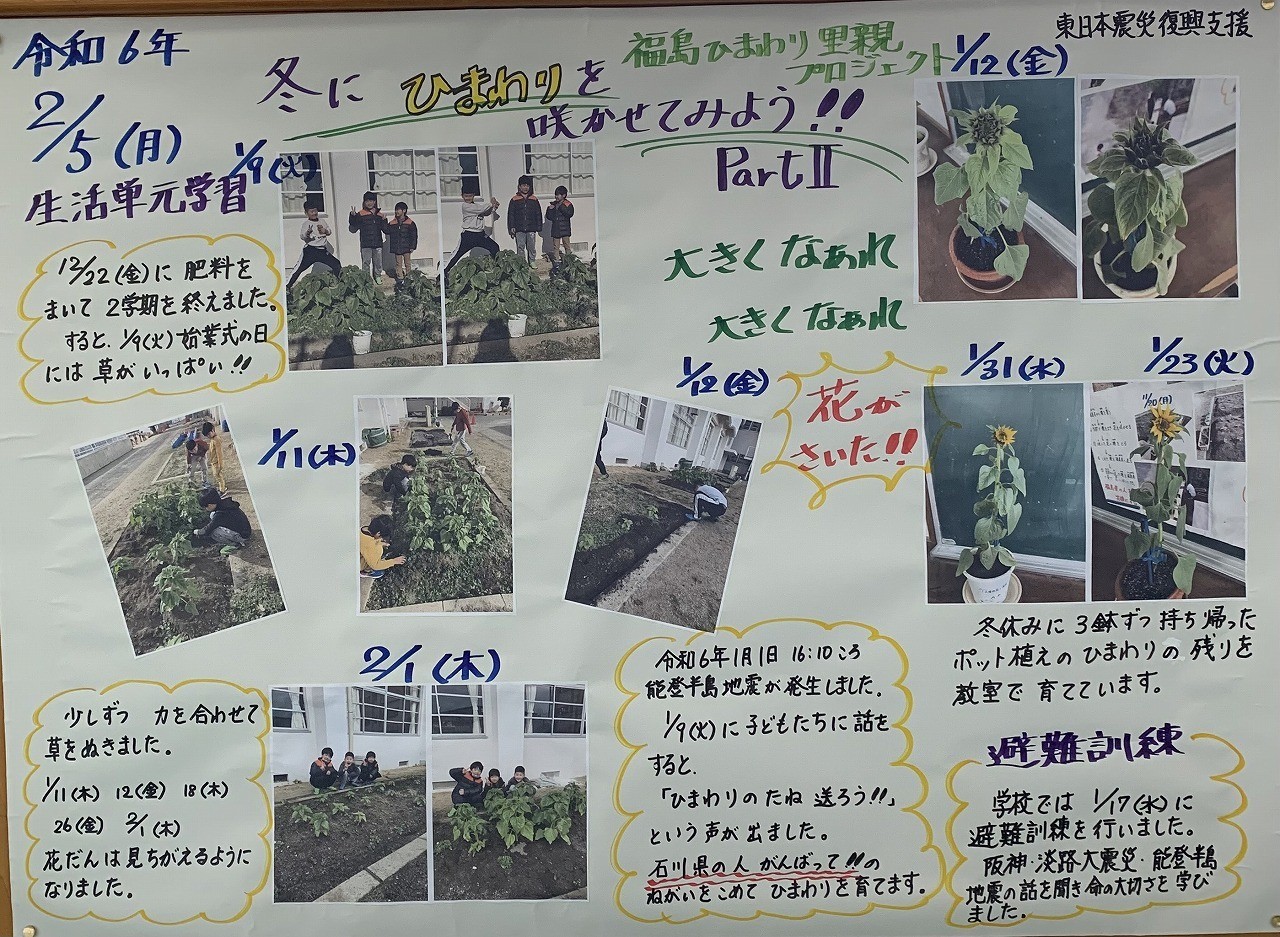 令和6年
2/5(月)
生活単元学習
冬に ひまわりを
咲かせてみよう!!
Part II
福島ひまわり里親
プロジェクト
東日本震災復興支援
12/22(金)に 肥料を
まいて 2学期を 終えました。
すると、1/9(火)始業式の日
には 草が いっぱい!!
1/9(火)
大きく なぁれ
大きく なぁれ
1/12(金)
1/11(木)
1/12(金)
花が
さいた!!
1/31(木)
1/23(火)
11/20(月)
冬休みに 3鉢ずつ 持ち帰った
ポット植えの ひまわりの 残りを
教室で 育てています。
2/1(木)
少しずつ 力を合わせて
草をぬきました。
1/11(木) 12(金) 18(木)
26(金) 2/1(木)
花だんは 見ちがえるように
なりました。
令和6年1月1日 16:10ころ
能登半島地震が発生しました。
1/9(火)に子どもたちに 話を
すると、
「ひまわりのたね 送ろう!!」
という声が 出ました。
石川県の人 がんばって!!の
ねがいをこめて ひまわりを育てます。
避難訓練
学校では 1/17(水)に
避難訓練を行いました。
阪神・淡路大震災・能登半島
地震の話を聞き 命の大切さを 学び
ました。